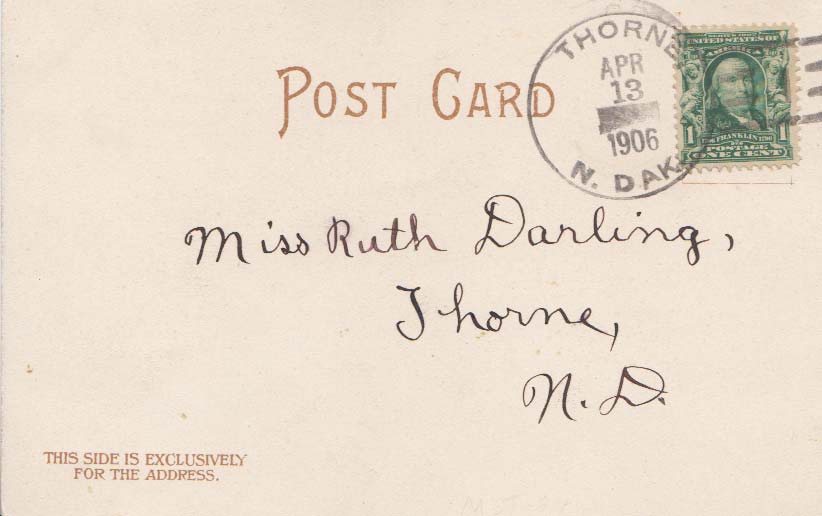 THORNE
APR
13
1906
N. DAK.
UNITED STATES OF
AMERICA
1 FRANKLIN 1
POSTAGE
ONE CENT
POST CARD
Miss Ruth Darling,
Thorne,
N.D.
THIS SIDE IS EXCLUSIVELY
FOR THE ADDRESS.